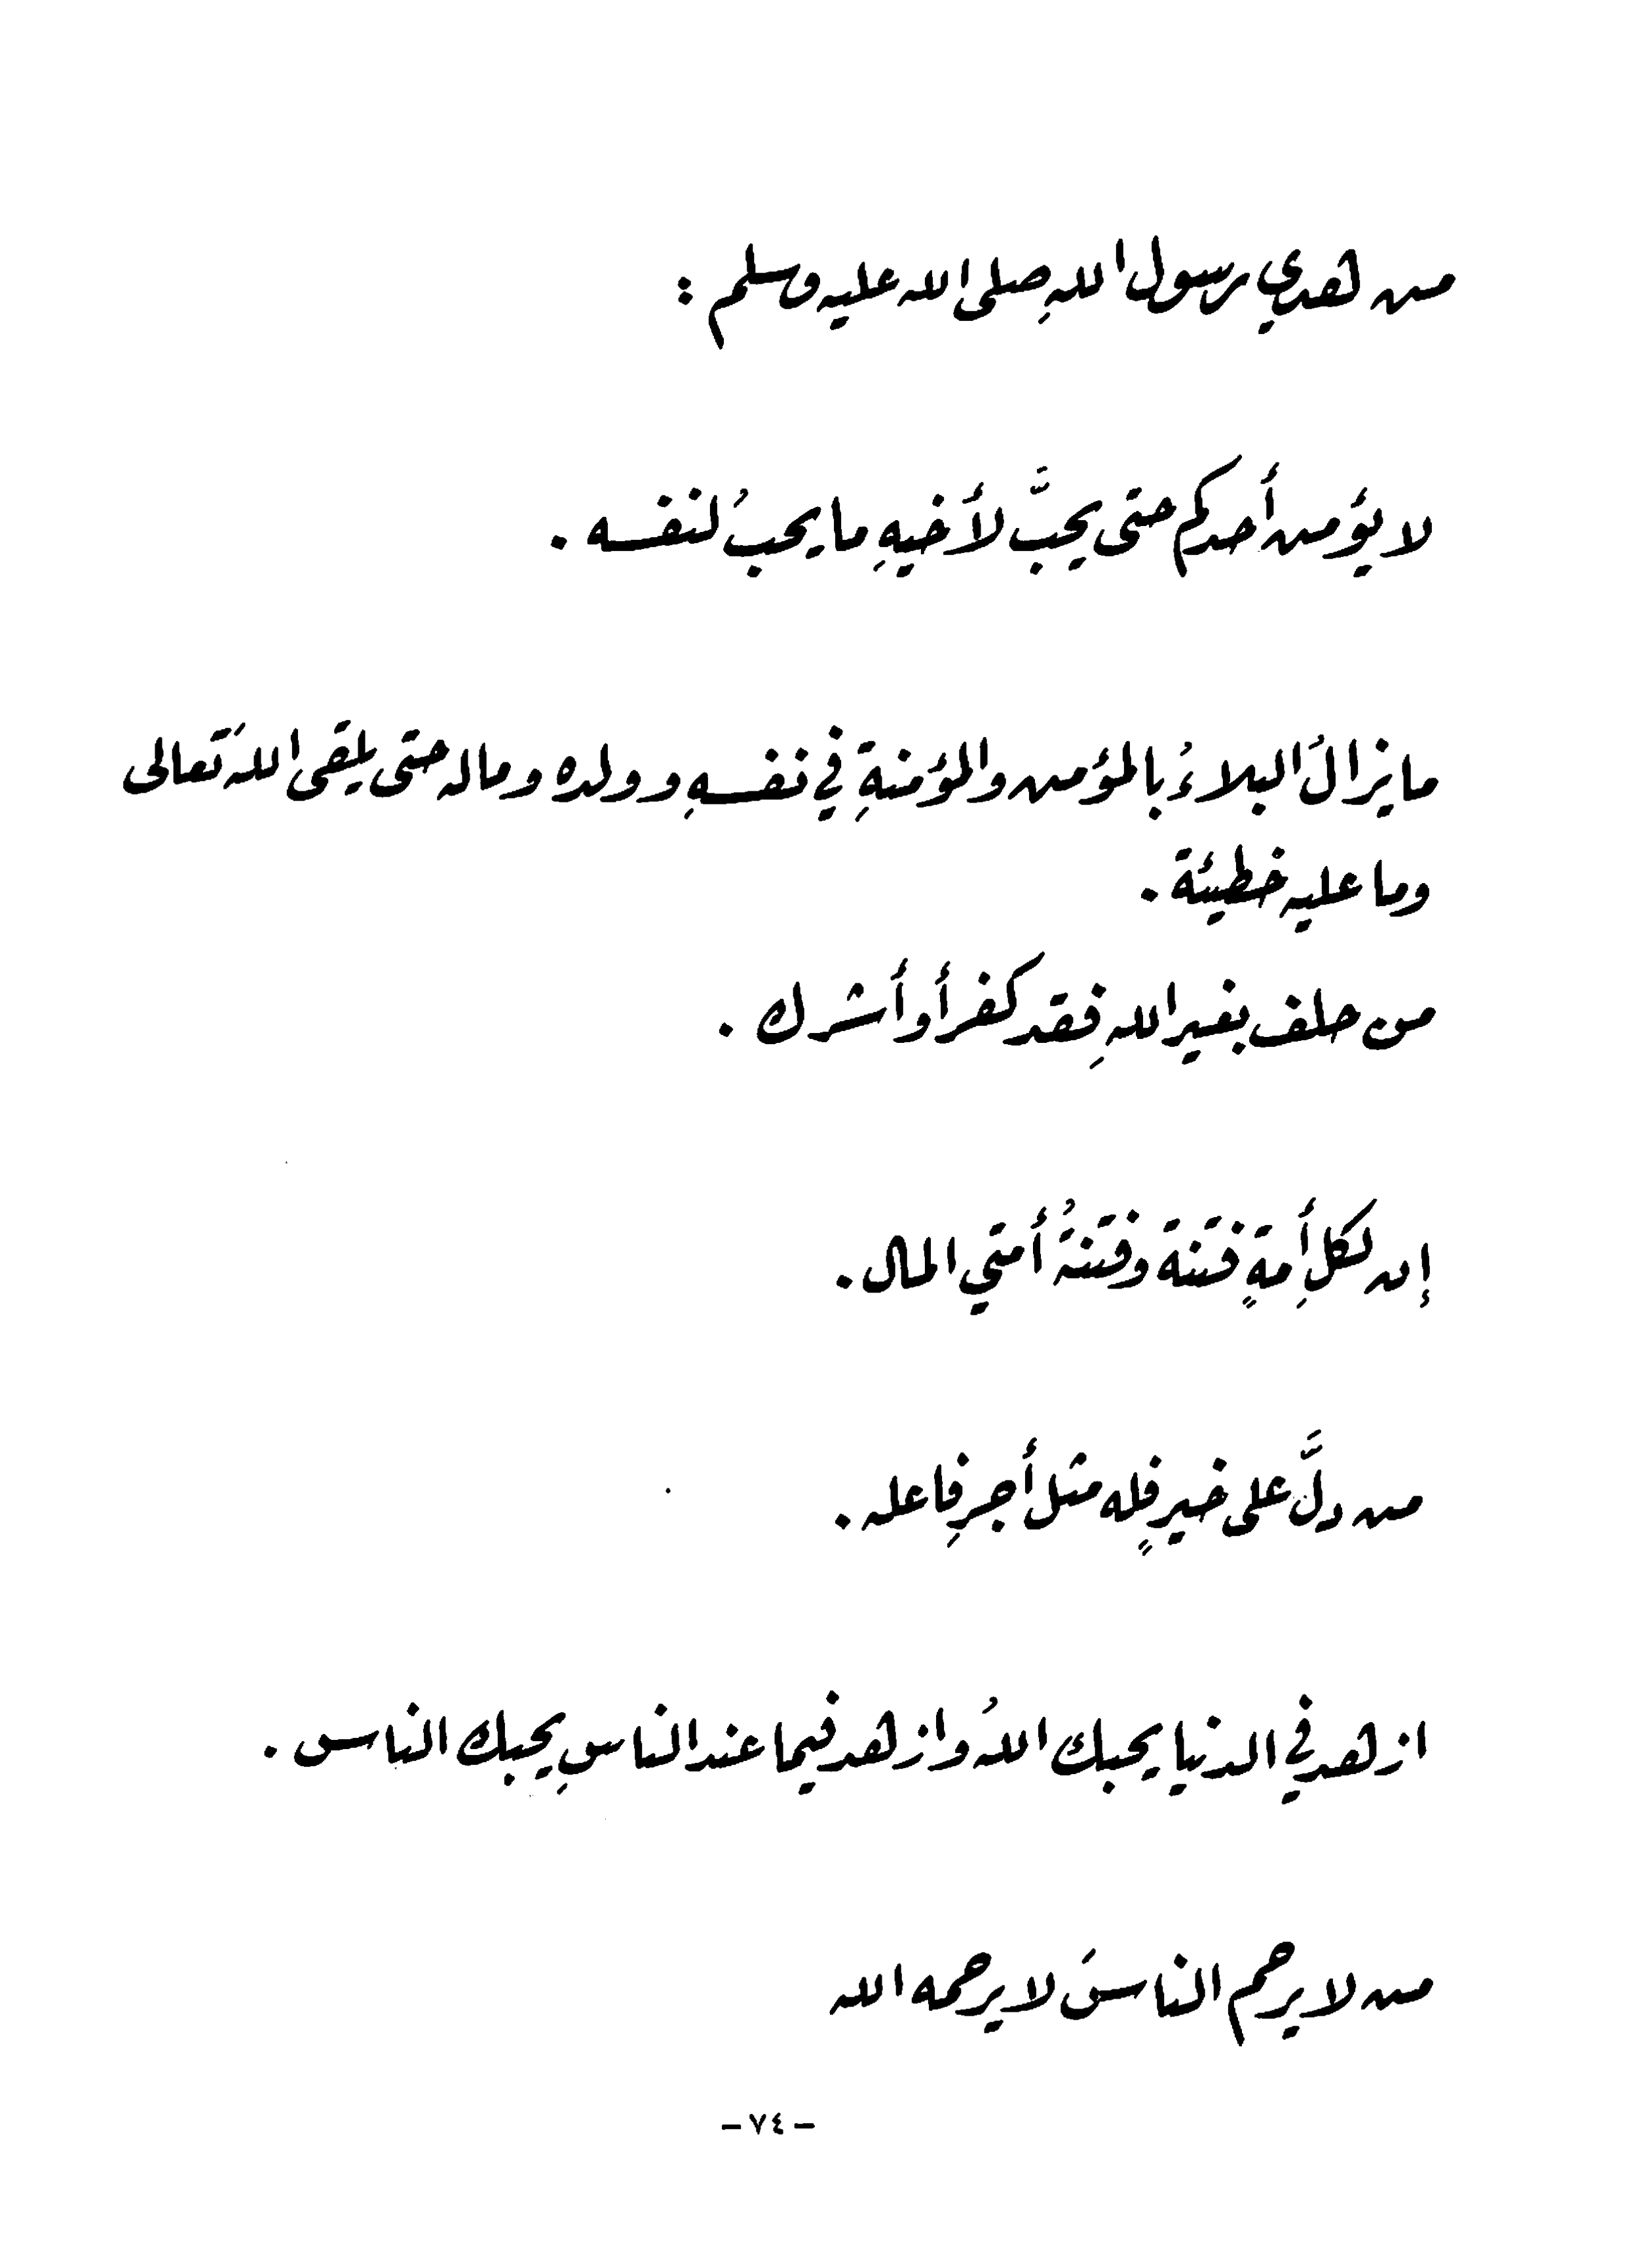 من هدي رسول اللهِ صلى الله عليه وسلم :
لا يؤمن أحدكم حتى يحبَّ لأخيهِ ما يحبُ لنفسه .
ما يزالُ البلاءُ بالمؤمن والمؤمنةِ في نفسهِ وولده وماله حتى يلقى اللهَ تعالى
وما عليه خطيئة .
من حلف بغير اللهِ فقد كفر أو أشرك .
إن لكلِ أمةٍ فتنة وفتنةُ أمتي المال .
من دلَّ على خيرٍ فله مثل أجرِ فاعله .
ازهد في الدنيا يحبك اللهُ وازهد فيما عند الناسِ يحبك الناس .
من لا يرحم الناسَ لا يرحمه الله
- ٧٤ -